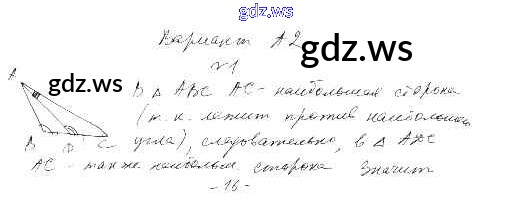 gdz.ws
Вариант А2
gdz.ws
№1
A
gdz.ws
В △ ABC AC - наибольшая сторона
(т.к. лежит против наибольшего
B D C угла), следовательно, в △ ADC
AC - также наибольш. сторона Значит
- 16 -